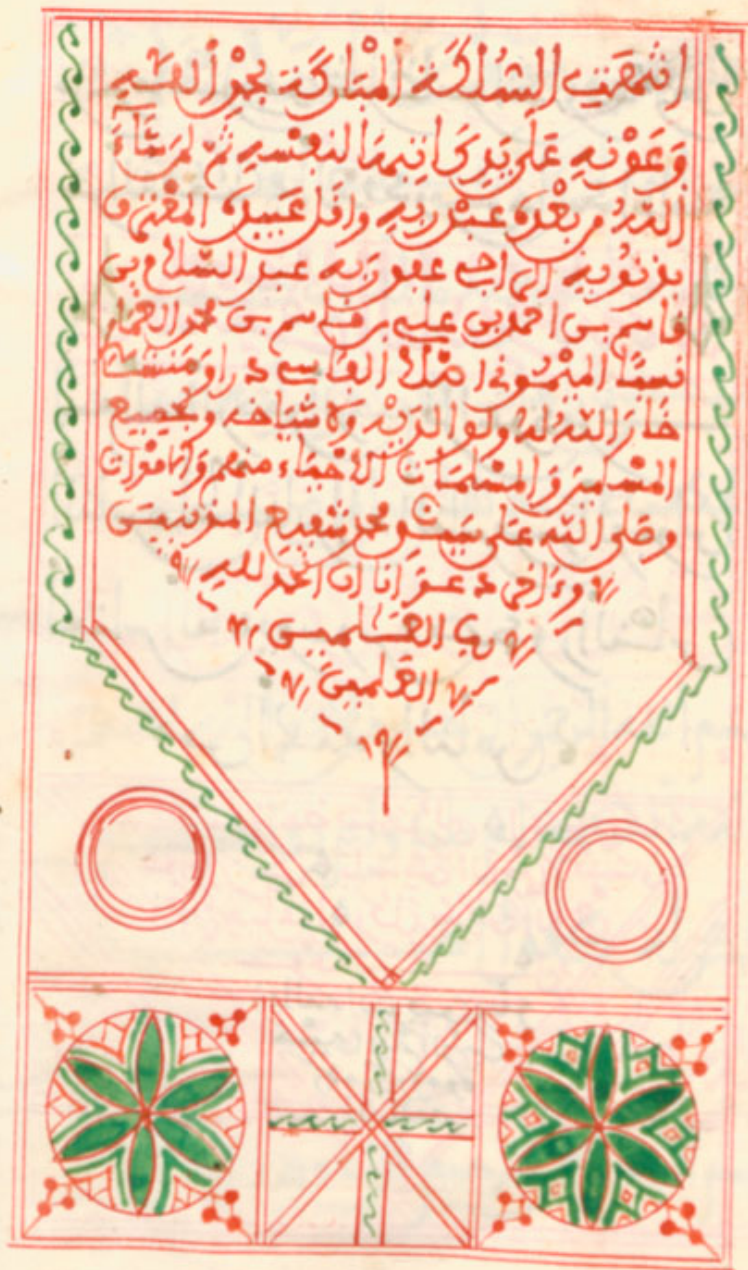 انتهت السلكة المباركة بحمد الله
وعونه على يد كاتبها لنفسه ثم لمن شاء
الله من بعده عبد ربه واقل عبيده المعترف
بذنوبه الراجي عفو ربه عبد السلام بن
قاسم بن احمد بن علي بن قاسم بن محمد
نسبا اصلا الفاسي دارا ومنشئا
خار الله له ولوالديه ولاشياخه ولجميع
المسلمين والمسلمات الاحياء منهم والاموات
وصلى الله على سيدنا محمد شفيع المذنبين
وءاخر دعوانا ان الحمد لله
رب العلمين
العلمين